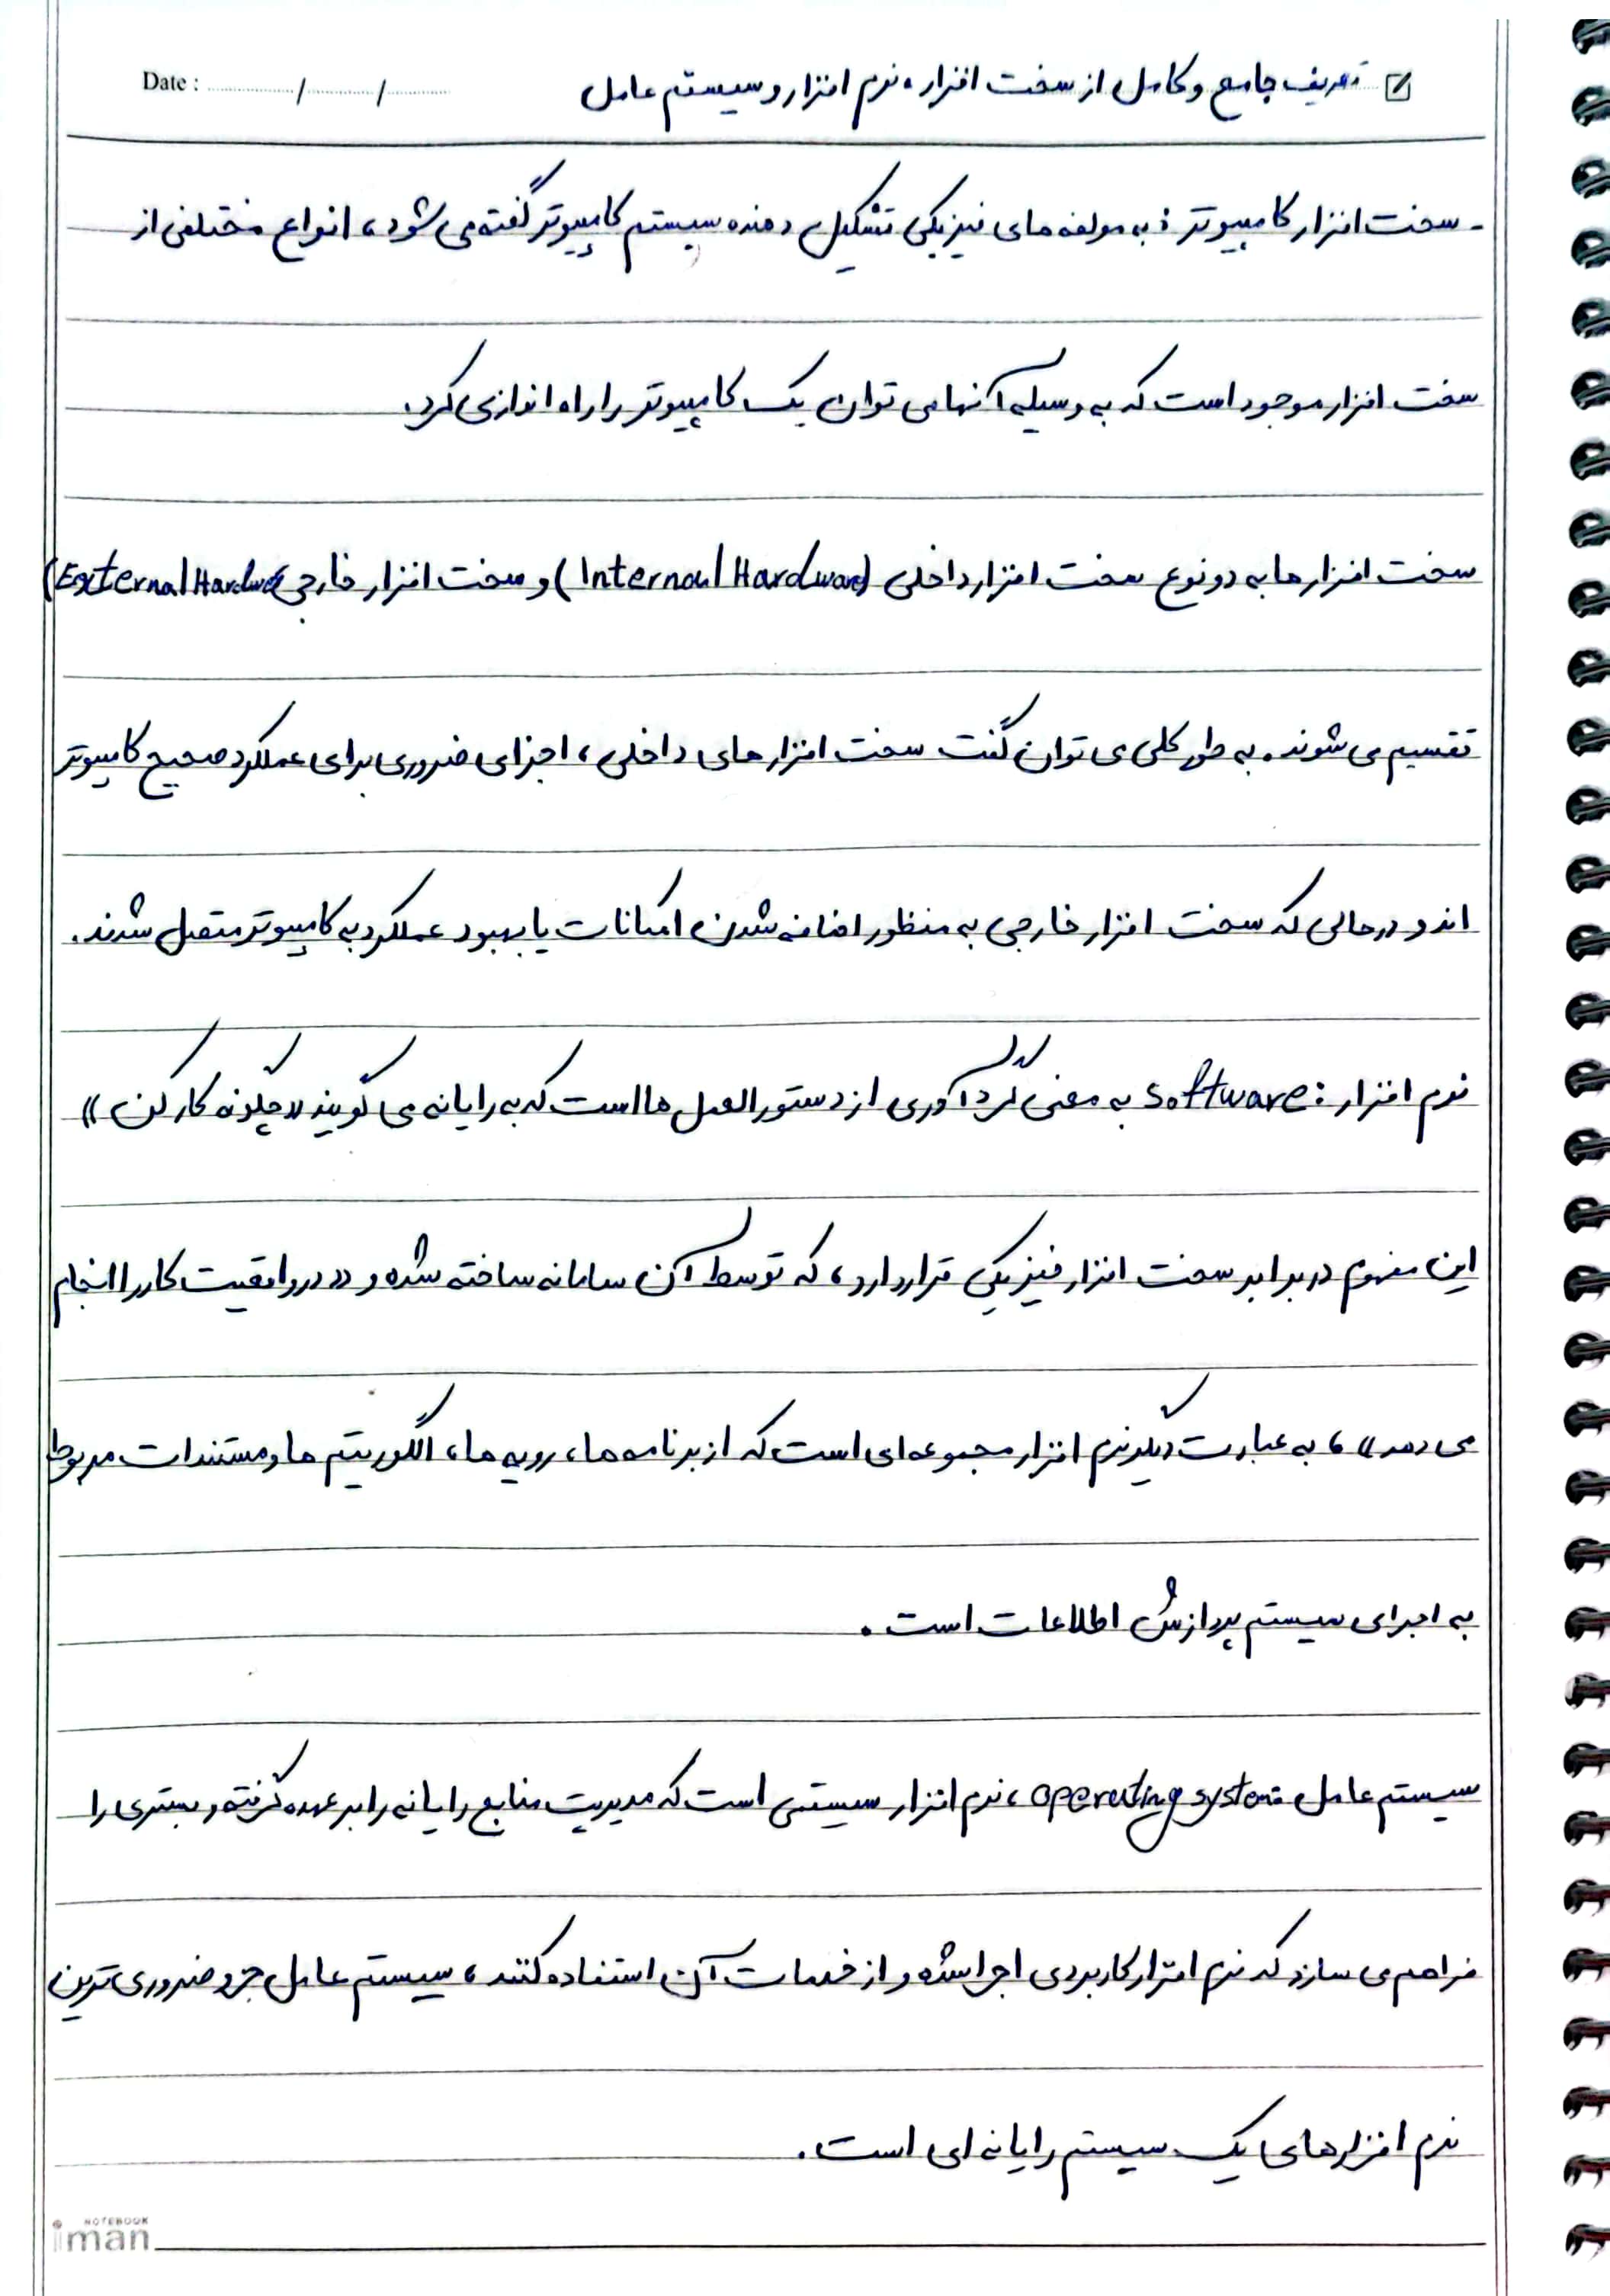 تعریف جامع و کامل از سخت افزار ، نرم افزار و سیستم عامل
Date : ............/............/............
- سخت افزار کامپیوتر : به مولفه های فیزیکی تشکیل دهنده سیستم کامپیوتر گفته می شود ، انواع مختلفی از
سخت افزار موجود است که به وسیله آنها می توان یک کامپیوتر را راه اندازی کرد.
سخت افزار ها به دو نوع سخت افزار داخلی (Internal Hardware) و سخت افزار خارجی (External Hardware)
تقسیم می شوند . به طور کلی می توان گفت سخت افزار های داخلی ، اجزای ضروری برای عملکرد صحیح کامپیوتر
اند و در حالی که سخت افزار خارجی به منظور اضافه شدن امکانات یا بهبود عملکرد به کامپیوتر متصل شدند .
نرم افزار : Software به معنی گردآوری از دستور العمل ها است که به رایانه می گویند « چگونه کار کن »
این مفهوم در برابر سخت افزار فیزیکی قرار دارد ، که توسط آن سامانه ساخته شده و « در واقعیت کار را انجام
می دهد » ، به عبارت دیگر نرم افزار مجموعه ای است که از برنامه ها ، رویه ها ، الگوریتم ها و مستندات مربوط
به اجرای سیستم پردازش اطلاعات است .
سیستم عامل : operating system ، نرم افزار سیستمی است که مدیریت منابع رایانه را بر عهده گرفته و بستری را
فراهم می سازد که نرم افزار کاربردی اجرا شده و از خدمات آن استفاده کنند ، سیستم عامل جزو ضروری ترین
نرم افزارهای یک سیستم رایانه ای است .
NOTEBOOK
iman